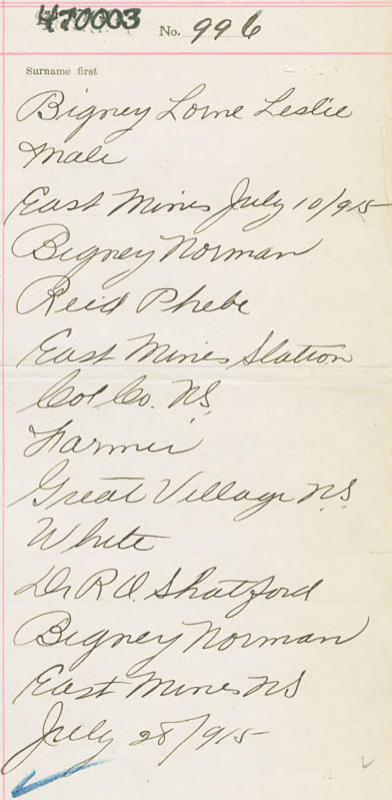 470003
No. 996
Surname first
Bigney Lorne Leslie
Male
East Mines July 10/915
Bigney Norman
Reid Phebe
East Mines Station
Col Co. NS
Farmer
Great Village N.S.
White
Dr R O. Shatford
Bigney Norman
East Mines NS
July 28/915